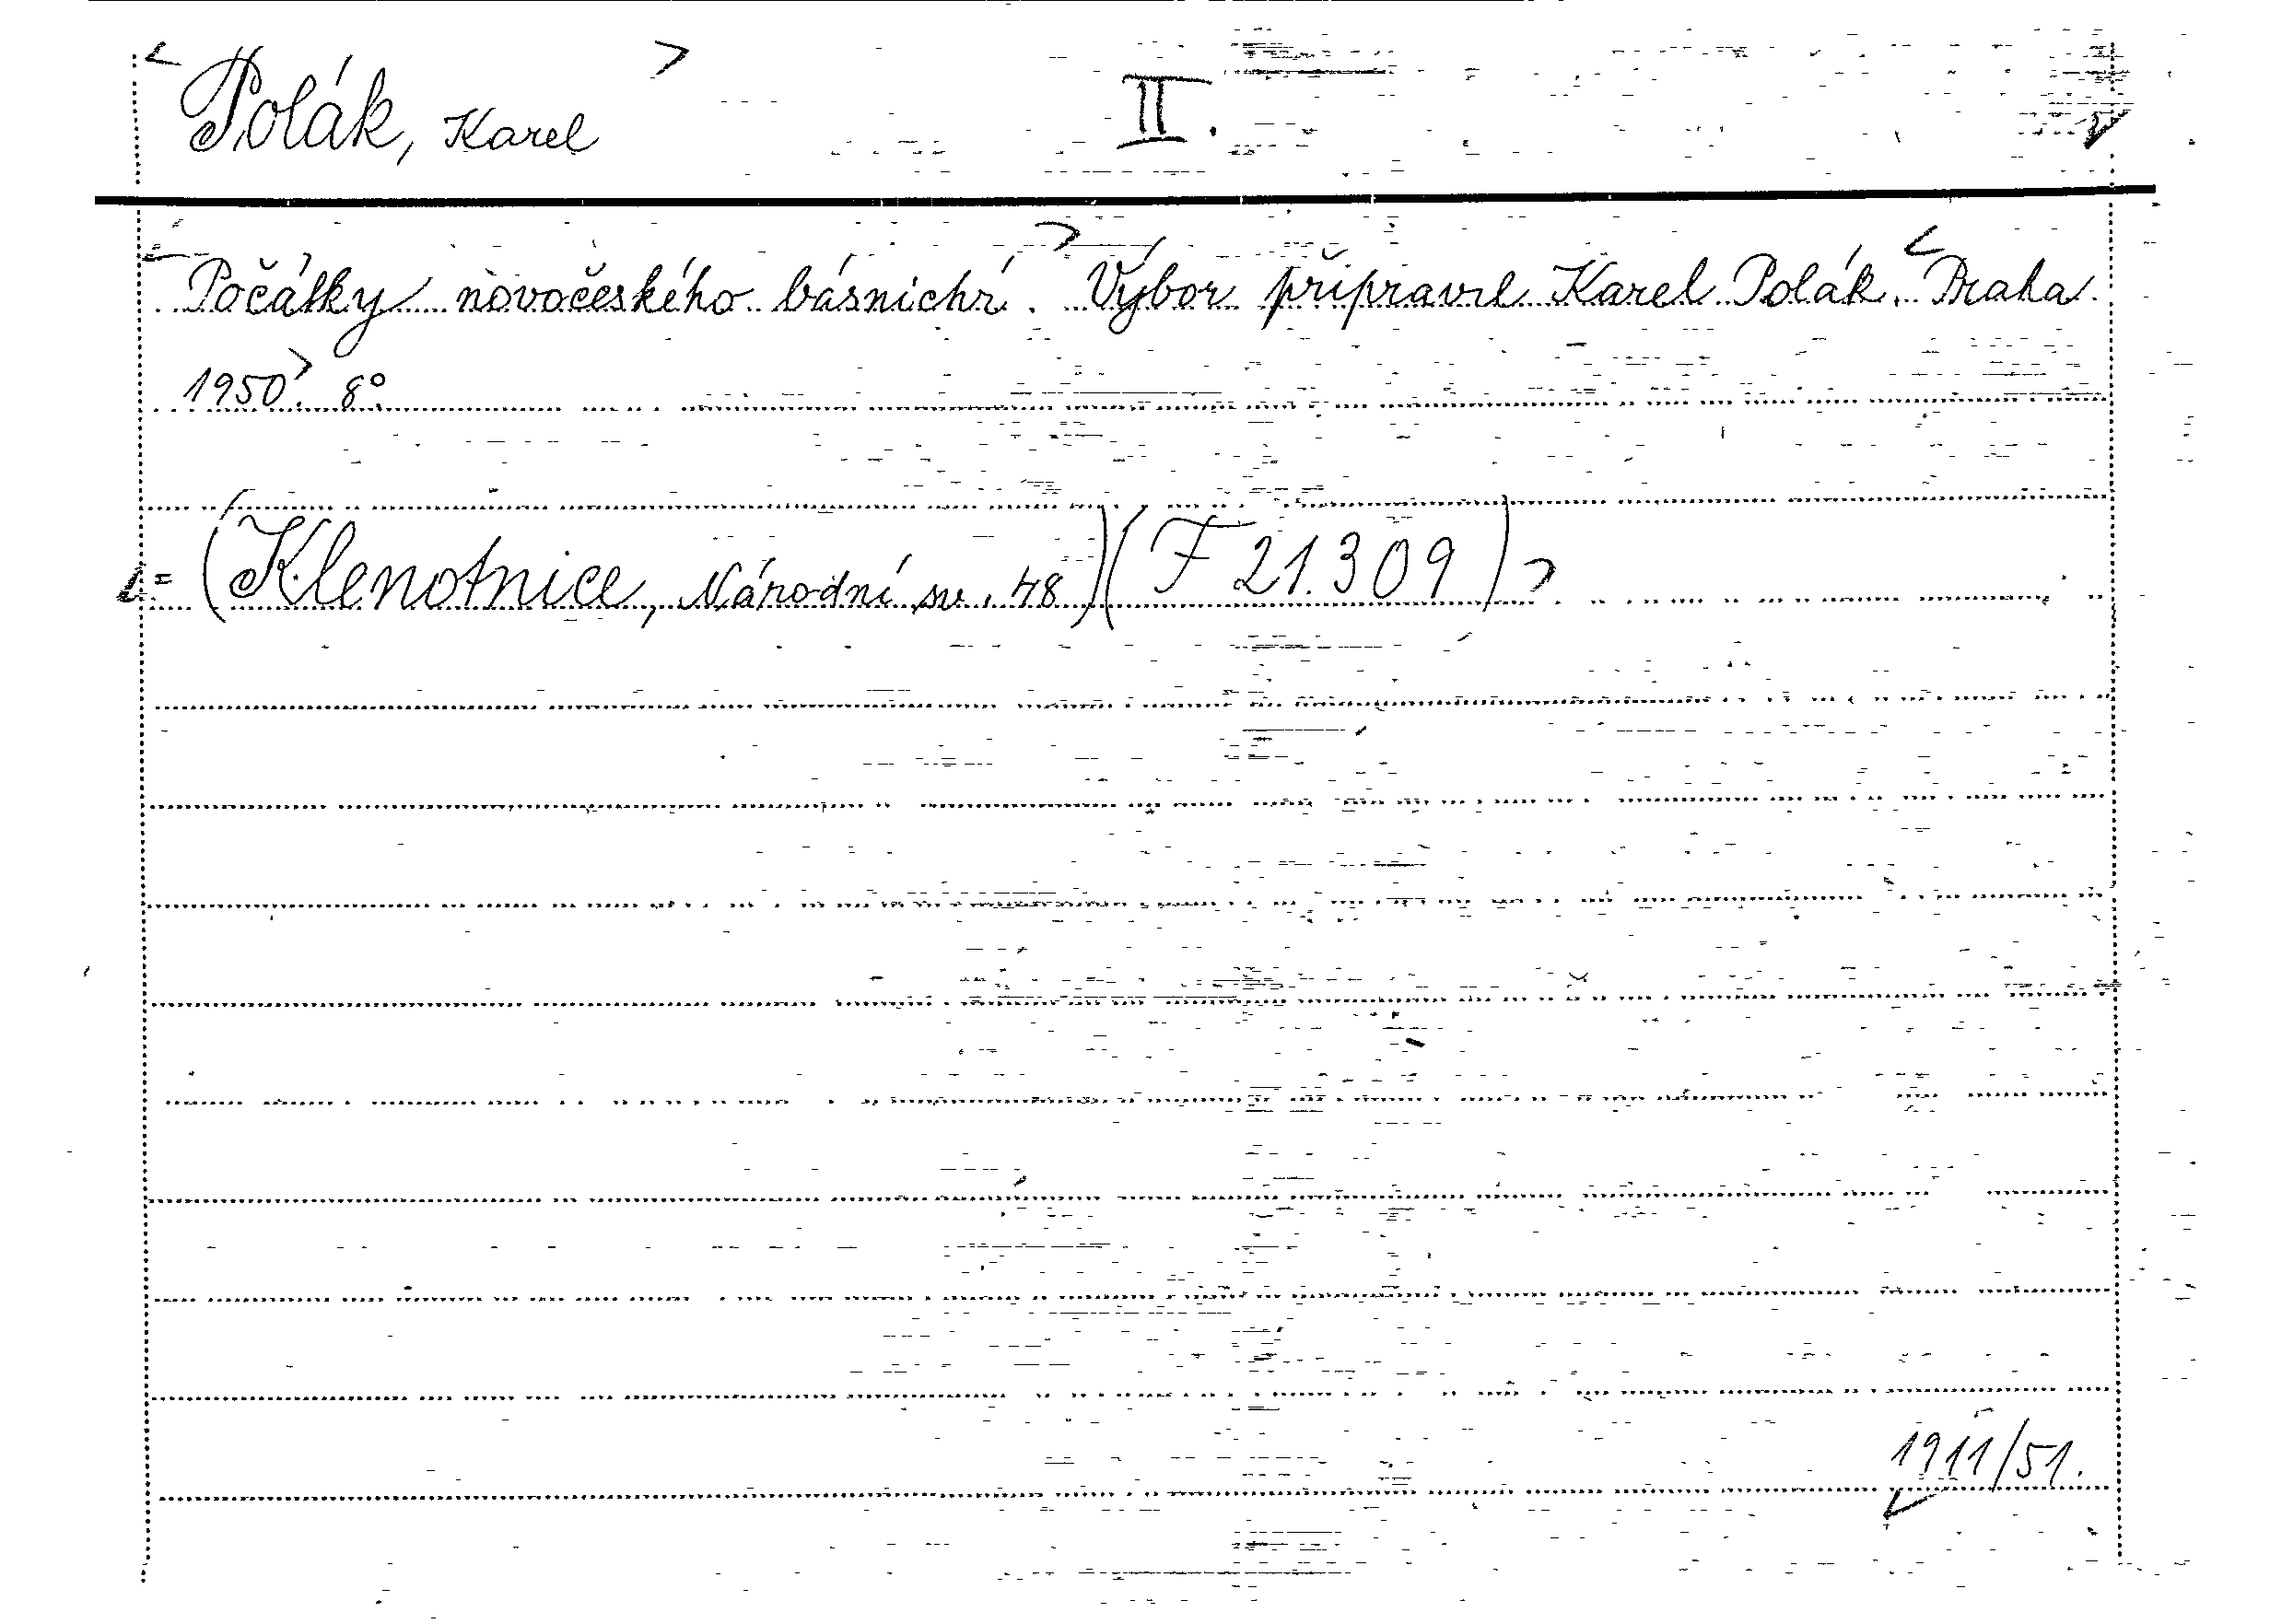 Polák, Karel II.
Počátky novočeského básnictví. Výbor připravil Karel Polák. Praha
1950. 8°.
= (Klenotnice, Národní sv. 48) (F 21.309)
1911/51.